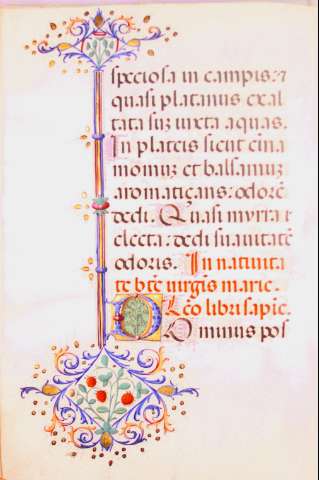 speciosa in campis: ⁊
quasi platanus exal
tata suʒ iuxta aquas.
In plateis sicut cina
momuʒ et balsamuʒ
aromatiçans: odorē
dedi. Quasi myrra e
electa: dedi suavitatē
odoris. In nativita
te bt̄e virgis marie.
Lc̄o libri sapie.
Dominus pos